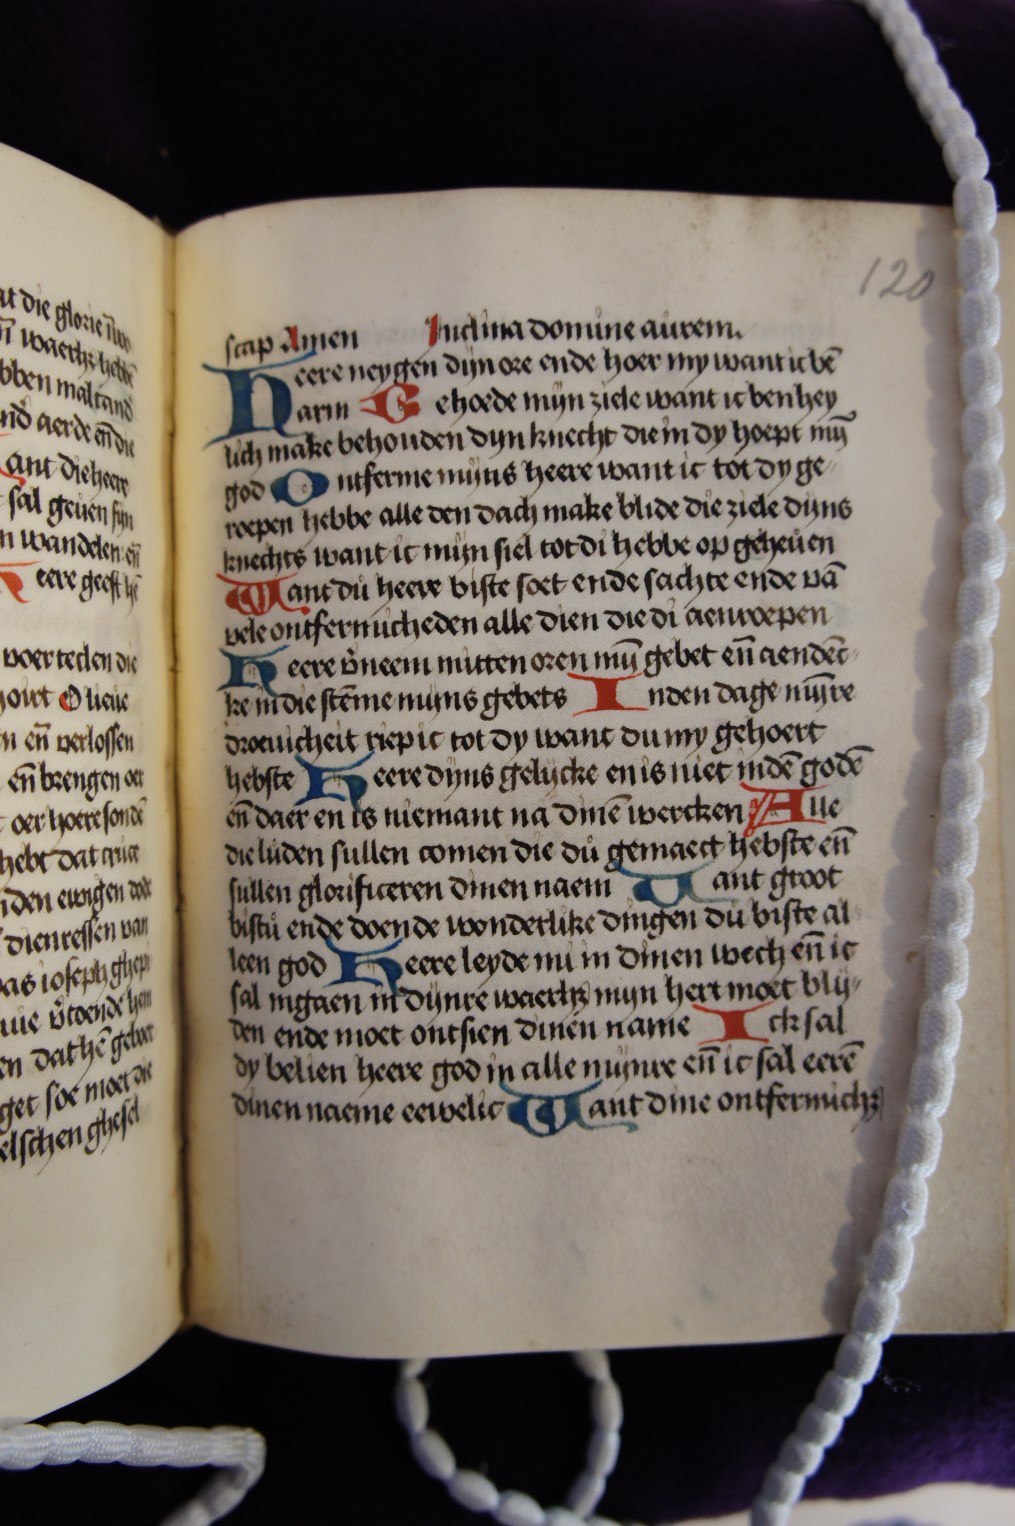 at die glorie
waerhz hebbē
bben maltand
nd aerde en̄ die
ant die heere
sal geuen sijn
n wandelen en̄
eere geeft hē
voertecken die
hout O lieue
n en̄ verlossen
en̄ brengen oec
oer hoere sondē
hebt dat cruce
nden ewigen dode
dienressen van
as ioseph
en dat hē
get soe moet die
elschen ghesel
120
scap Amen Inclina domine aurem.
Heere neygen dijn ore ende hoer my want ic bē
arm Gehoede mijn ziele want ic ben hey
lich make behouden dijn knecht die in dy hoept mij̄
god Ontferme mijns heere want ic tot dy ge
roepen hebbe alle den dach make blide die ziele dijns
knechts want ic mijn siel tot di hebbe op geheuen
Want du heere biste soet ende sachte ende vā
vele ontfermicheden alle dien die di aenroepen
Heere v̄neem mitten oren mij̄ gebet en̄ aendēc
ke in die stēme mijns gebets In den dage mij̄re
droeuicheit riep ic tot dy want du my gehoert
hebste Heere dijns gelijcke en is niet in dē godē
en̄ daer en is niemant na dinē wercken Alle
die luden sullen comen die du gemaect hebste en̄
sullen glorificeren dinen naem Want groot
bistu ende doende wonderlike dingen du biste al
leen god Heere leyde mi in dinen wech en̄ ic
sal ingaen in dijnre waerhz mijn hert moet blij
den ende moet ontsien dinen name Ick sal
dy belien heere god in alle mijnre en̄ ic sal eerē
dinen naeme eewelic Want dine ontfermichz